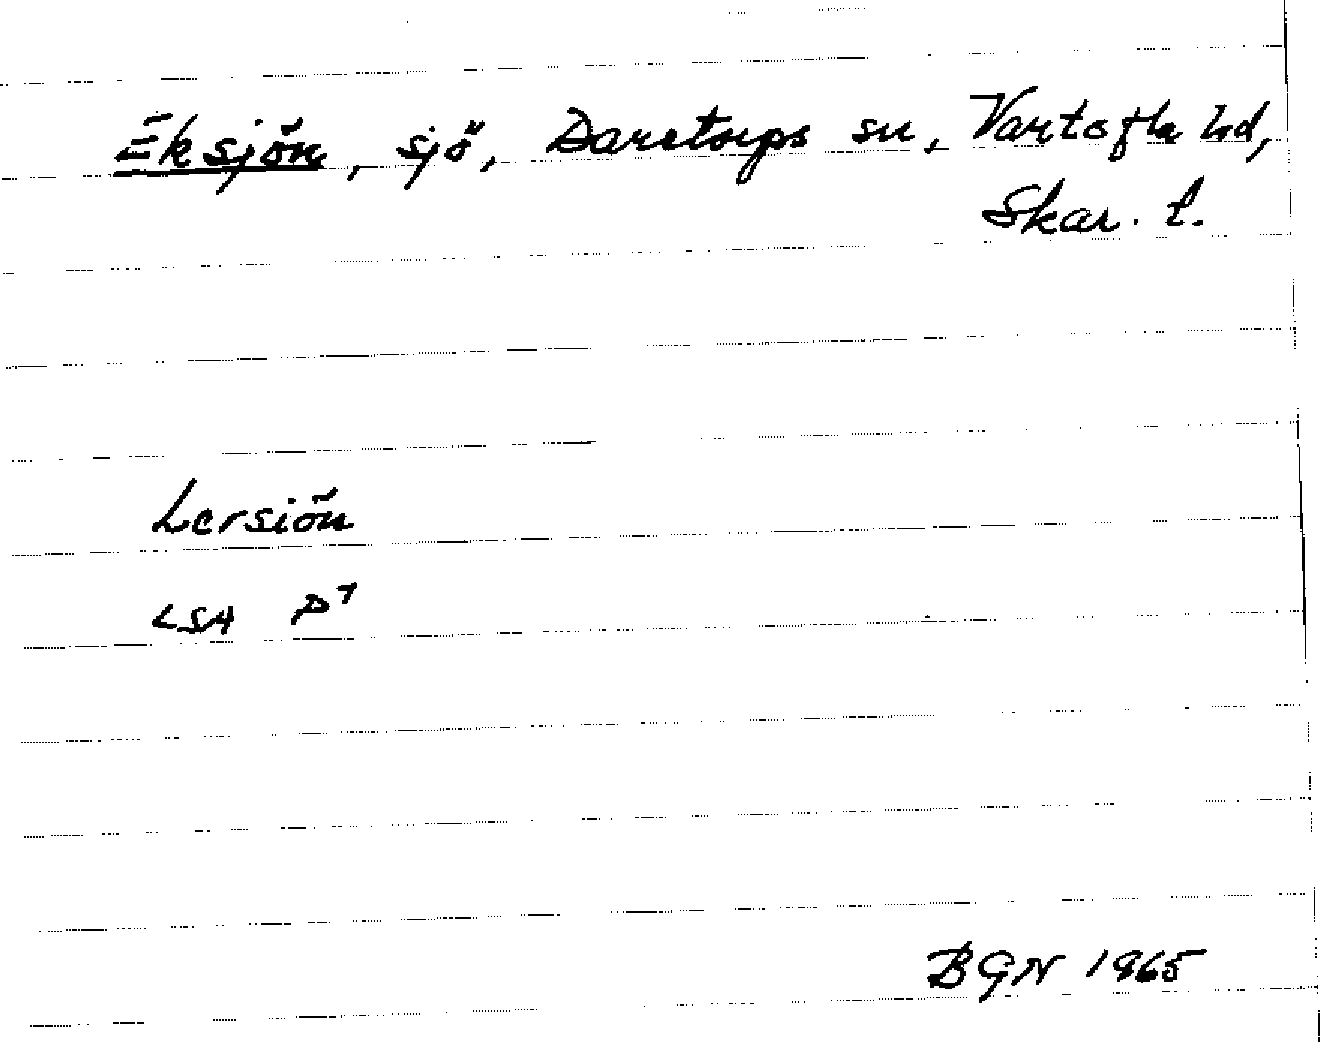 Eksjön, sjö, Daretorps sn, Vartofta hd,
Skar. l.
Lersiön
LSA P7
BGN 1965